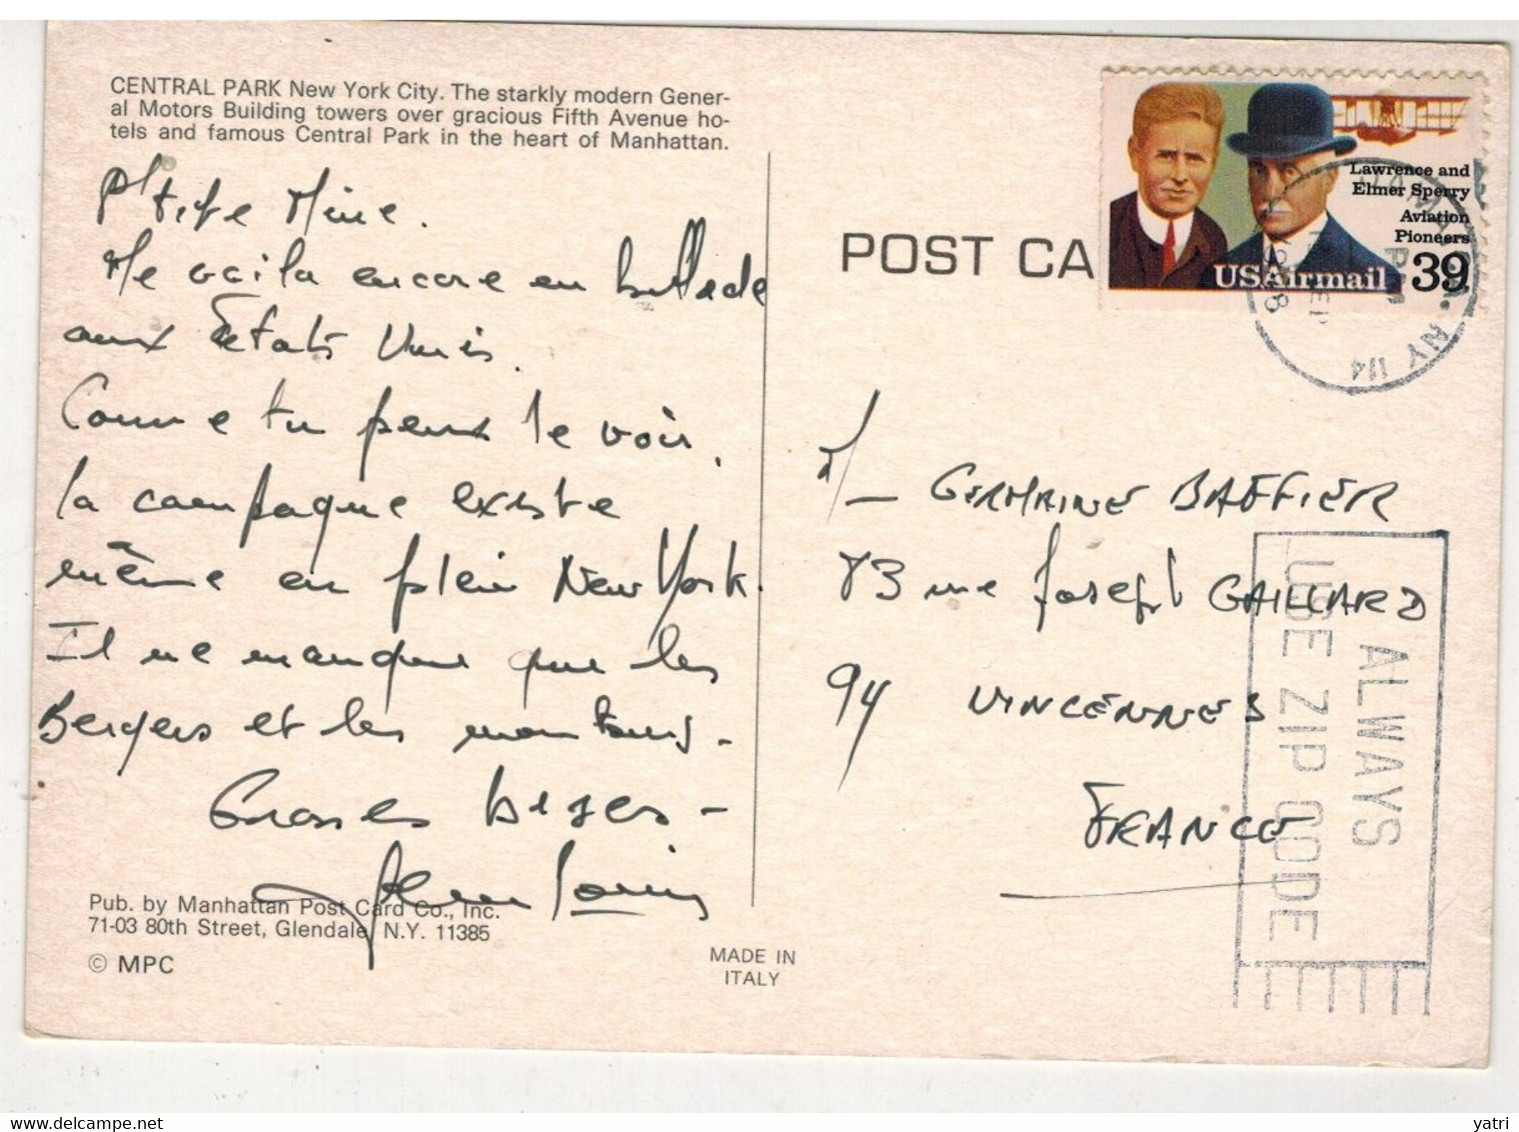 CENTRAL PARK New York City. The starkly modern Gener-
al Motors Building towers over gracious Fifth Avenue ho-
tels and famous Central Park in the heart of Manhattan.
P'tite Mine.
Me voila encore en ballade
aux États Unis.
Comme tu peux le voir,
la campagne existe
même en plein New York.
Il ne manque que les
Bergers et les moutons.
Grosses bises -
Pub. by Manhattan Post Card Co., Inc.
71-03 80th Street, Glendale, N.Y. 11385
© MPC
MADE IN
ITALY
POST CA
Lawrence and
Elmer Sperry
Aviation
Pioneers
USAirmail 39
NY 114
PM
GERMAINE BAFFIER
73 rue Joseph GAILLARD
94 VINCENNES
FRANCE
ALWAYS
USE ZIP CODE
yatri